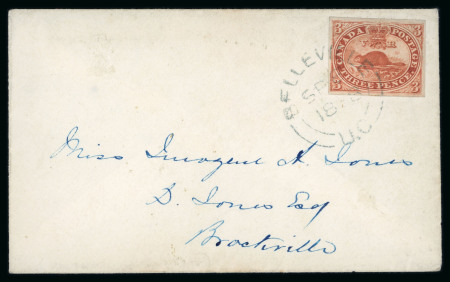 CANADA POSTAGE
3 3
V R
3 THREE PENCE 3
BELLEV
SE
18
U.C
Miss Imogene A. Jones
D. Jones Esq
Brockville